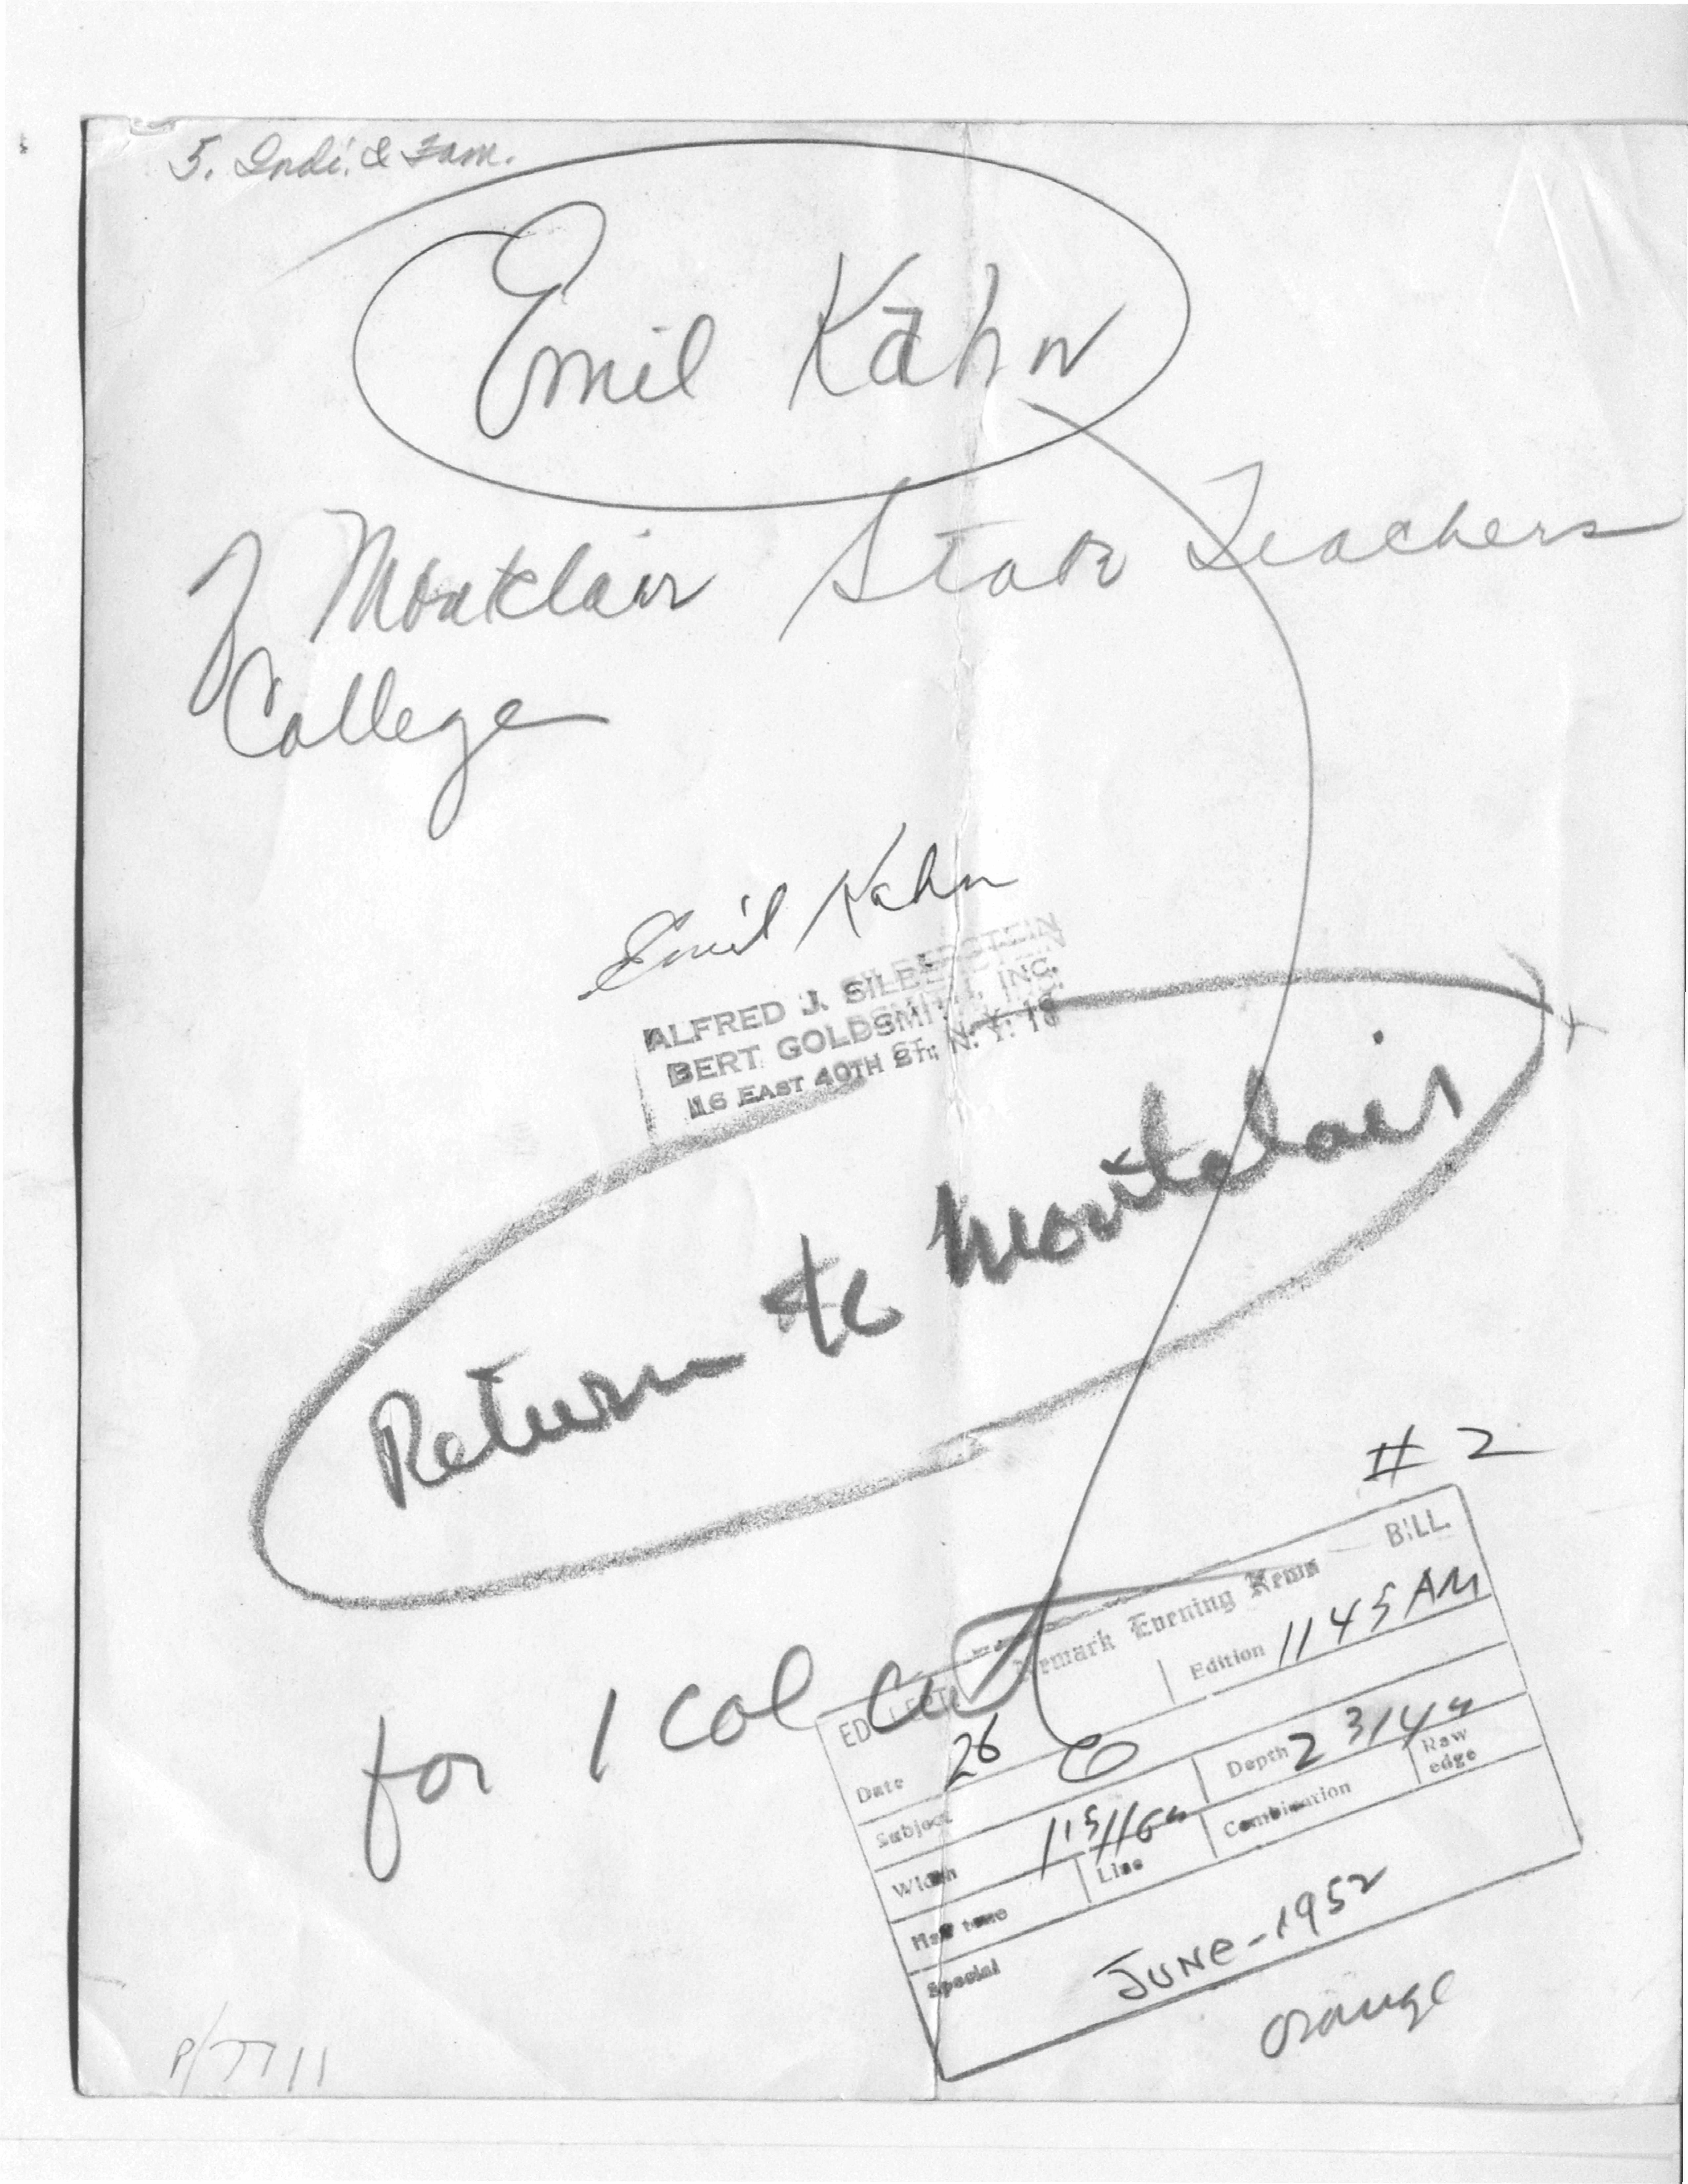 5. Indi. & Fam.
Emil Kahn
of Montclair State Teachers
College
Emil Kahn
ALFRED J. SILBERSTEIN
BERT GOLDSMITH, INC.
16 EAST 40TH ST., N. Y. 16
Return to Montclair
# 2
BILL
Newark Evening News
for 1 col cut
ED DEPT.
Edition 1145 AM
Date 26
Subject
Depth 2 3/4"
Raw edge
Width 1 15/16"
Line
Combination
Half tone
Special
JUNE-1952
orange
P/7711